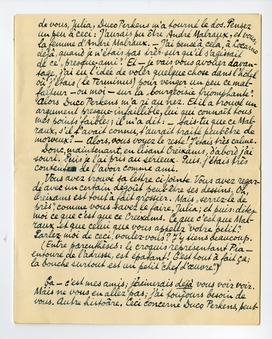 de vous, Julia, Duco Perkens m'a tourné le dos. Pensez
un peu à ceci: j'aurais pu être André Malraux, et vous,
la femme d'André Malraux. — J'ai pensé à cela, à Locarno
déjà, quand je n'étais pas très sur qu'il s'agissait
de ce "presque-ami"! Et — je vais vous avouer davan-
tage. J'ai eu l'idée de voler quelque chose dans l'hôtel
où j'étais (le Terminus) pour venger un peu ce mal-
faiteur — ou moi — sur la bourgeoisie triomphante!
Alors Duco Perkens m'a ri au nez. Et il a trouvé un
argument presque infaillible, lui qui connaît tous
mes points faibles; il m'a dit: — Sais-tu que ce Mal-
raux, s'il t'avait connu, t'aurait traité peut-être de
morveux! — Alors, vous voyez le reste! J'étais très calme.
Donc, maintenant, en lisant Crexdans, d'abord j'ai
souri. Puis je l'ai pris au sérieux. Puis, j'étais très
content de l'avoir comme ami.
Vous avez trouvé sa lettre ci-jointe. Vous avez regar-
dé avec un certain dégoût peut-être ses dessins. Oh,
Crexdans est tout à fait grossier. Mais, serrez-le de
près; comme vous savez le faire, Julia; et puis dites-
moi ce que c'est que ce Crexdans. Ce que c'est que Mal-
raux et que celui que vous appelez "votre petit".
Parlez-moi de ceci, voulez-vous? J'y tiens beaucoup.
(Entre parenthèses: le croquis représentant Pia —
ensuite de l'adresse, est épatant! C'est tout à fait ça;
la bouche surtout est un petit chef d'œuvre.)
Ça — c'est mes amis, j'aimerais déjà vous voir voir.
Mais ne vous en allez pas; j'ai toujours besoin de
vous. Autre histoire. Ceci concerne Duco Perkens, peut